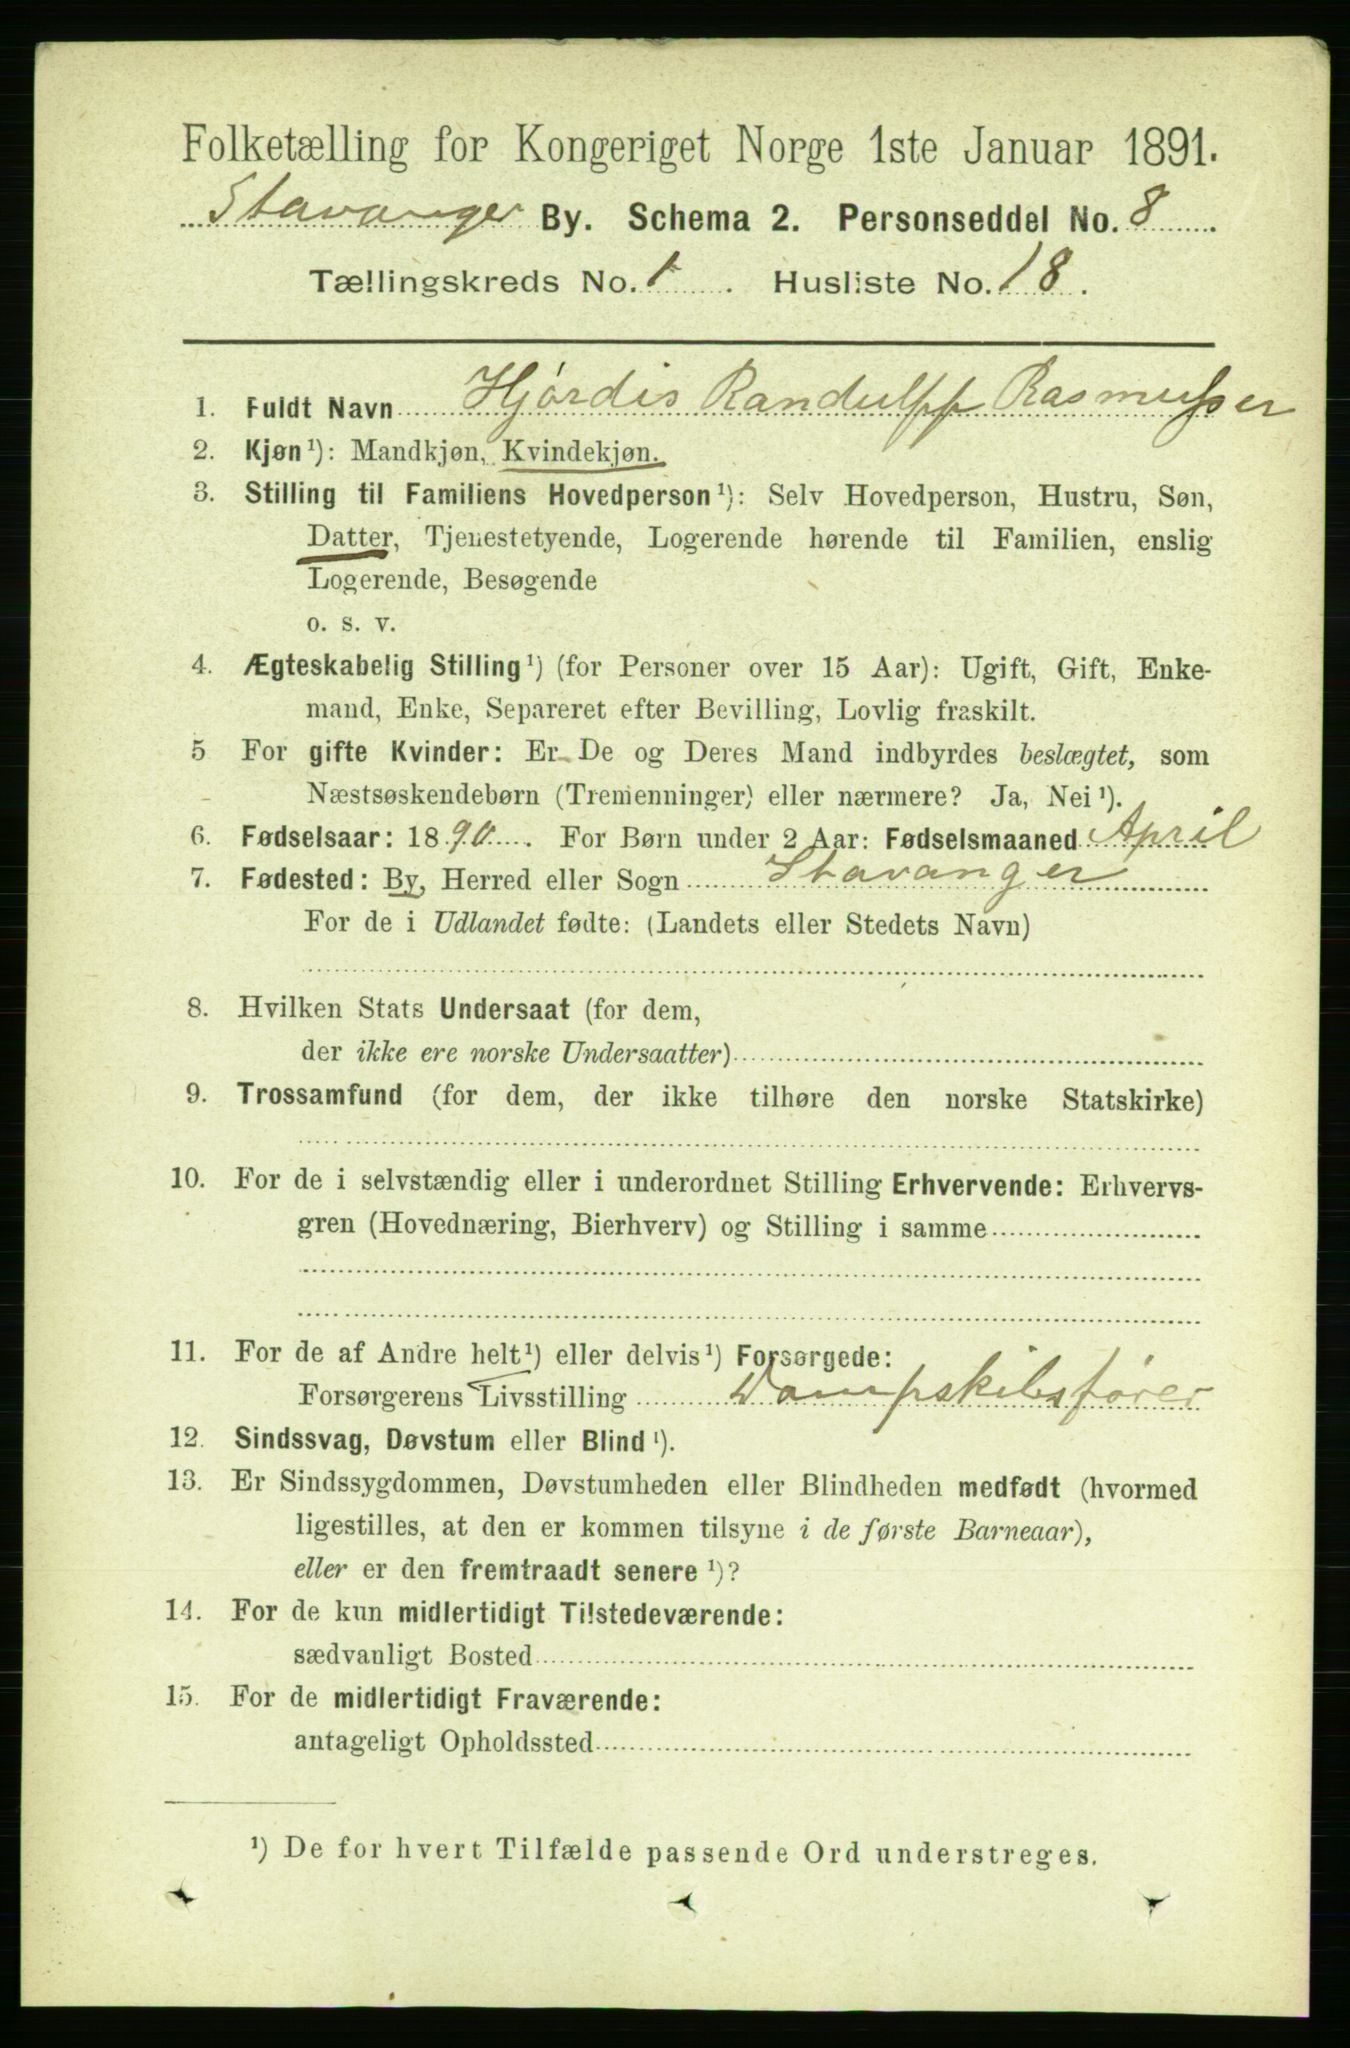 Folketælling for Kongeriget Norge 1ste Januar 1891.
Stavanger By. Schema 2. Personseddel No. 8
Tællingskreds No. 1. Husliste No. 18.
1. Fuldt Navn Hjørdis Randulff Rasmussen
2. Kjøn ¹): Mandkjøn, Kvindekjøn.
3. Stilling til Familiens Hovedperson ¹): Selv Hovedperson, Hustru, Søn,
Datter, Tjenestetyende, Logerende hørende til Familien, enslig
Logerende, Besøgende
o. s. v.
4. Ægteskabelig Stilling ¹) (for Personer over 15 Aar): Ugift, Gift, Enke-
mand, Enke, Separeret efter Bevilling, Lovlig fraskilt.
5 For gifte Kvinder: Er De og Deres Mand indbyrdes beslægtet, som
Næstsøskendebørn (Tremenninger) eller nærmere? Ja, Nei ¹).
6. Fødselsaar: 1890. For Børn under 2 Aar: Fødselsmaaned April
7. Fødested: By, Herred eller Sogn Stavanger
For de i Udlandet fødte: (Landets eller Stedets Navn)
8. Hvilken Stats Undersaat (for dem,
der ikke ere norske Undersaatter)
9. Trossamfund (for dem, der ikke tilhøre den norske Statskirke)
10. For de i selvstændig eller i underordnet Stilling Erhvervende: Erhvervs-
gren (Hovednæring, Bierhverv) og Stilling i samme
11. For de af Andre helt ¹) eller delvis ¹) Forsørgede:
Forsørgerens Livsstilling Dampskibsfører
12. Sindssvag, Døvstum eller Blind ¹).
13. Er Sindssygdommen, Døvstumheden eller Blindheden medfødt (hvormed
ligestilles, at den er kommen tilsyne i de første Barneaar),
eller er den fremtraadt senere ¹)?
14. For de kun midlertidigt Tilstedeværende:
sædvanligt Bosted
15. For de midlertidigt Fraværende:
antageligt Opholdssted
¹) De for hvert Tilfælde passende Ord understreges.